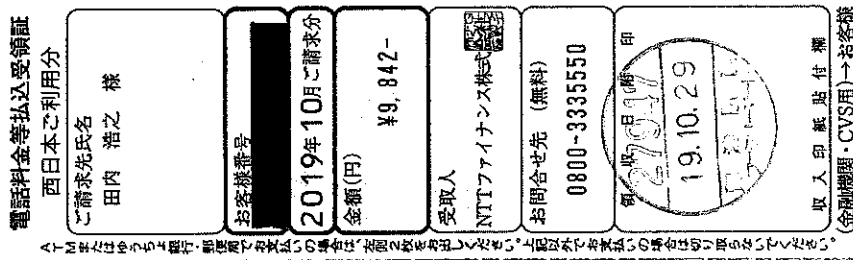 電話料金等払込受領証
西日本ご利用分
ご請求先氏名
田内 浩之 様
お客様番号
2019年10月ご請求分
金額(円)
¥9,842-
受取人
NTTファイナンス株式会社
お問合せ先 (無料)
0800-3335550
領収日附印
19.10.29
収入印紙貼付欄
(金融機関・CVS用)→お客様
ATMまたはゆうちょ銀行・郵便局でお支払いの場合は、左側2枚をお出しください。上記以外でお支払いの場合は切り取らないでください。